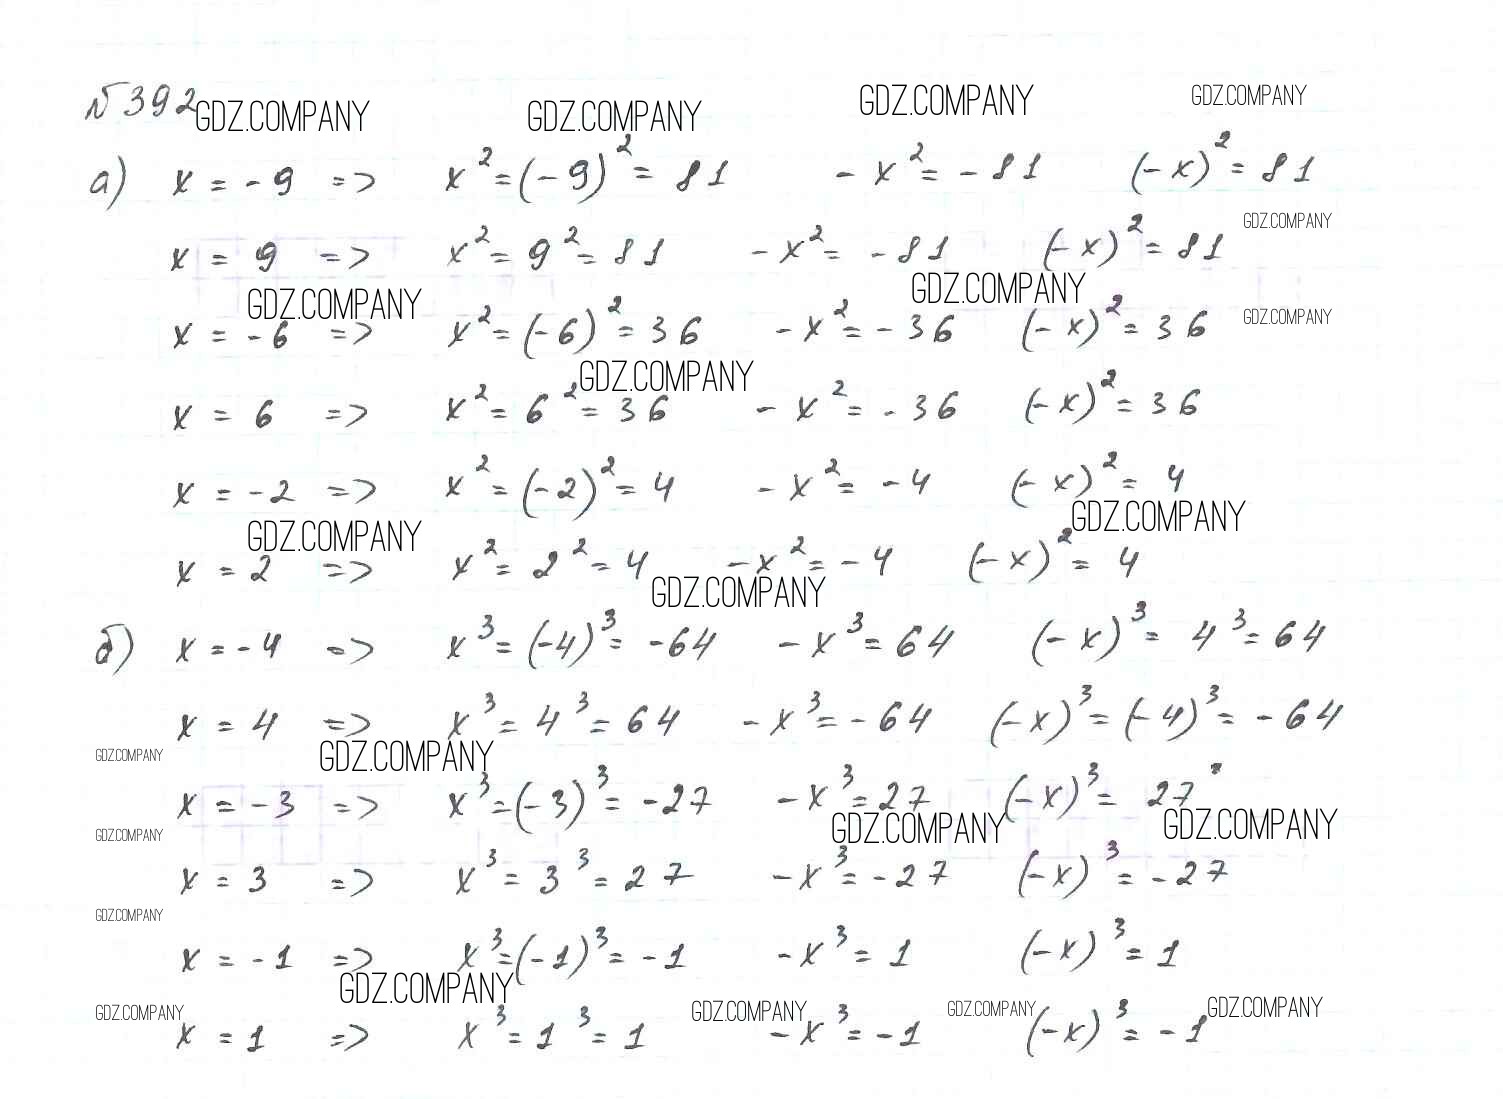 №392 GDZ.COMPANY GDZ.COMPANY GDZ.COMPANY GDZ.COMPANY
а) x = -9 => x² = (-9)² = 81 -x² = -81 (-x)² = 81
GDZ.COMPANY
x = 9 => x² = 9² = 81 -x² = -81 (-x)² = 81
GDZ.COMPANY GDZ.COMPANY GDZ.COMPANY
x = -6 => x² = (-6)² = 36 -x² = -36 (-x)² = 36
GDZ.COMPANY
x = 6 => x² = 6² = 36 -x² = -36 (-x)² = 36
x = -2 => x² = (-2)² = 4 -x² = -4 (-x)² = 4
GDZ.COMPANY GDZ.COMPANY
x = 2 => x² = 2² = 4 -x² = -4 (-x)² = 4
GDZ.COMPANY
б) x = -4 => x³ = (-4)³ = -64 -x³ = 64 (-x)³ = 4³ = 64
x = 4 => x³ = 4³ = 64 -x³ = -64 (-x)³ = (-4)³ = -64
GDZ.COMPANY GDZ.COMPANY
x = -3 => x³ = (-3)³ = -27 -x³ = 27 (-x)³ = 27
GDZ.COMPANY GDZ.COMPANY GDZ.COMPANY
x = 3 => x³ = 3³ = 27 -x³ = -27 (-x)³ = -27
GDZ.COMPANY
x = -1 => x³ = (-1)³ = -1 -x³ = 1 (-x)³ = 1
GDZ.COMPANY
GDZ.COMPANY GDZ.COMPANY GDZ.COMPANY GDZ.COMPANY
x = 1 => x³ = 1³ = 1 -x³ = -1 (-x)³ = -1